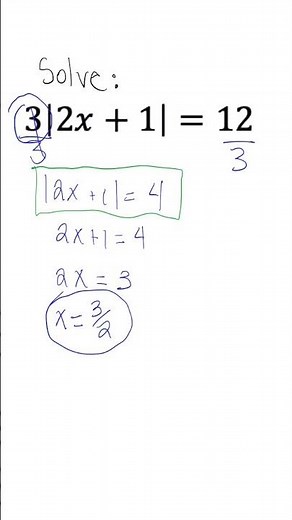 Solve:
3|2x + 1| = 12
3 3
|2x +1| = 4
2x+1 = 4
2x = 3
x = 3/2